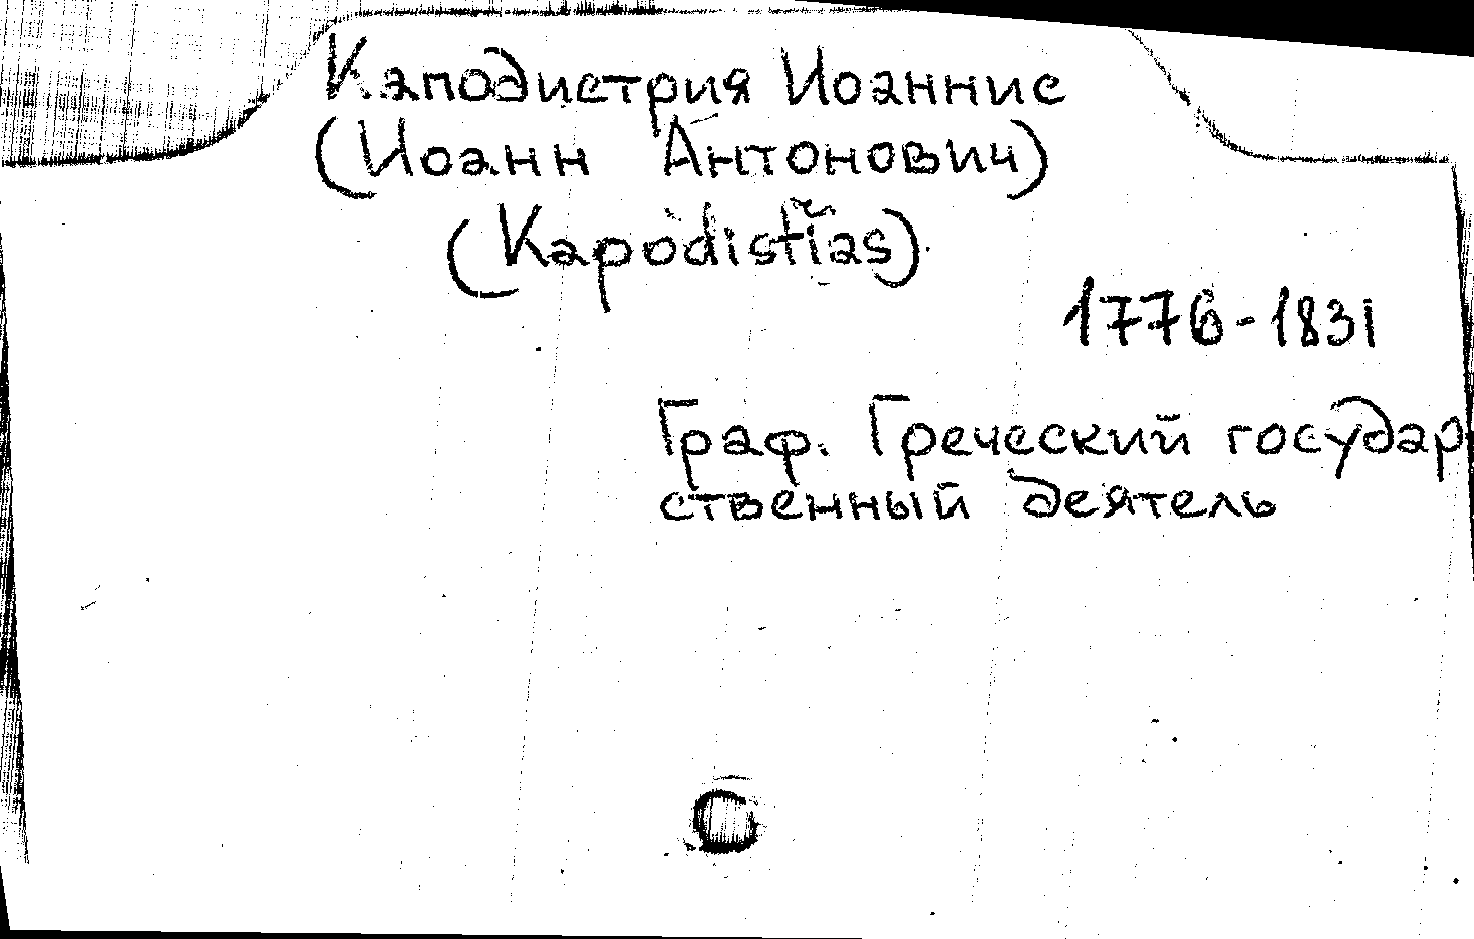 Каподистрия Иоаннис
(Иоанн Антонович)
(Kapodistrias)
1776-1831
Граф. Греческий государ
ственный деятель